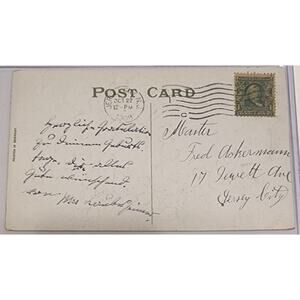 POST CARD
JERSEY
OCT 27
12-PM
Herzliche Gratulation
zu Deinem Geburts-
tage dir alles
Gute wünschend
von
Mrs
Master
Fred Ackermann
17 Jewett Ave
Jersey City